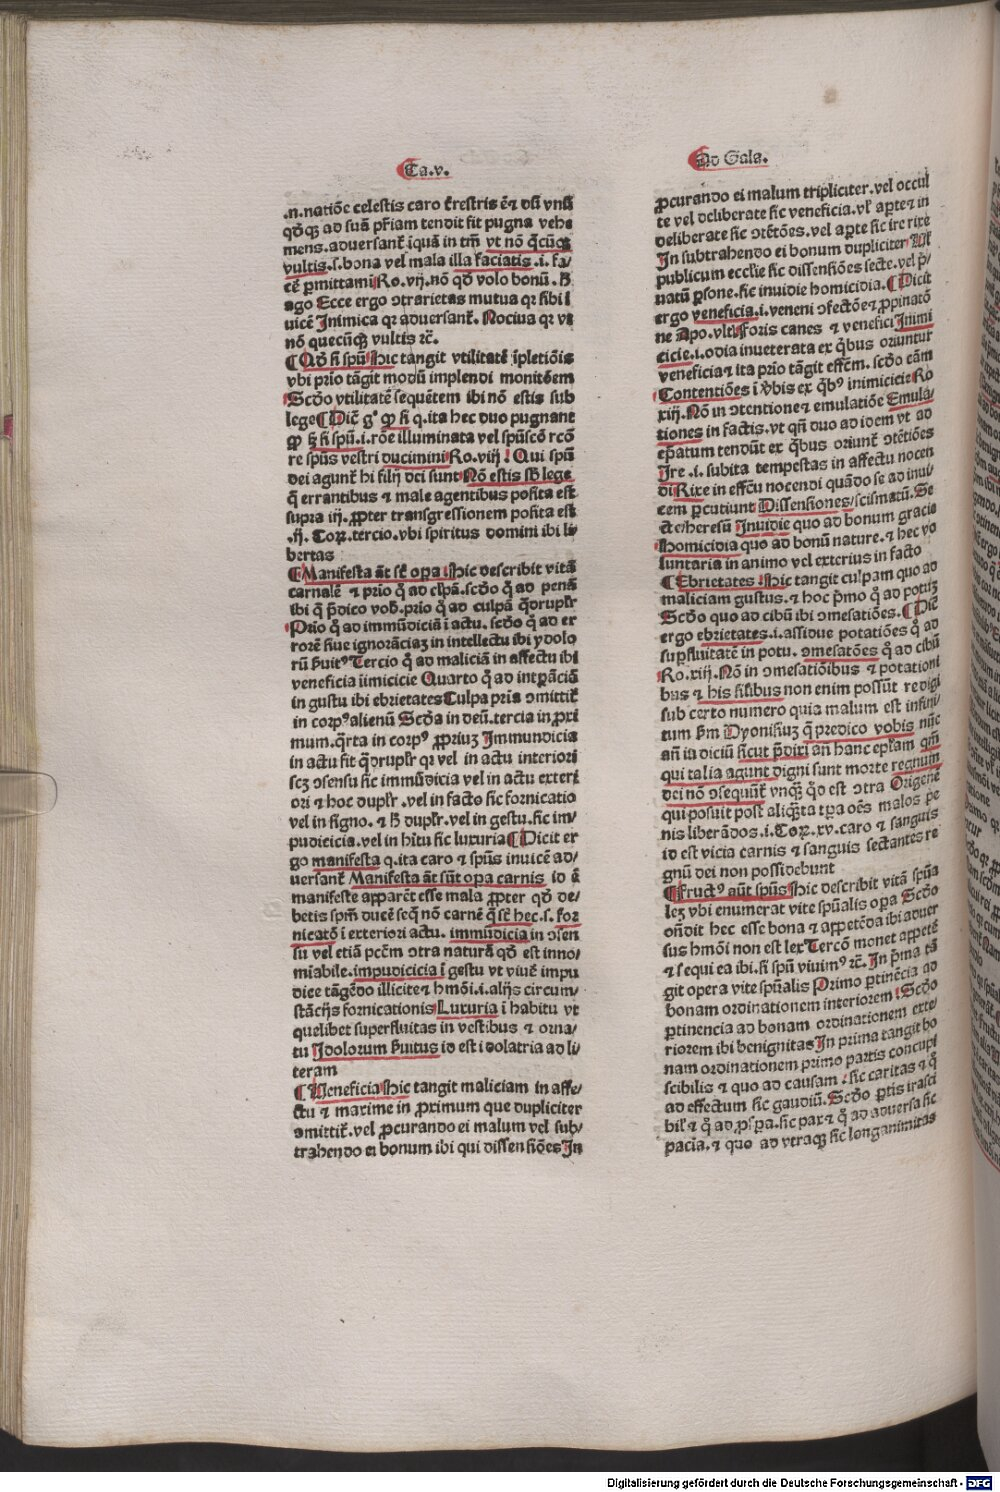 Ca.v.
.n.natiōe celestis caro t̄restris ē⁊ dū vnū
qd̄q̨ ad suā pr̄iam tendit fit pugna vehe
mens.aduersant̄ iquā in tm̄ vt nō q̄cūq̨
vultis.s.bona vel mala illa faciatis.i.fa/
cē ꝑmittami Ro.vij.nō qd̄ volo bonū.h̄
ago Ecce ergo ꝯtrarietas mutua qꝛ sibi i
uicē Inimica qꝛ aduersant̄. Nociua qꝛ vt
nō quecūq̨ vultis ⁊c̄.
¶Qd̄ si spū Hic tangit vtilitatē ipletiōis
vbi prīo tāgit modū implendi monitōem
Scd̄o vtilitatē sequētem ibi nō estis sub
lege¶Dic̄ g° ꝙ si q.ita hec duo pugnant
ꝙ h̄ si spū.i.rōe illuminata vel spūscō rcō
re spūs vestri ducimini Ro.viij! Qui spū
dei agunt̄ hi filij dei sunt Nō estis sb̄ lege
q̄ errantibus ⁊ male agentibus posita est
supra iij. ꝓpter transgressionem posita est
.ij. Coꝝ.tercio.vbi spiritus domini ibi li/
bertas
¶Manifesta āt st̄ opa Hic describit vitā
carnalē ⁊ prīo q̄ ad clpā.scd̄o q̄ ad penā
ibi q̄ p̄dico vob̄.prīo q̄ ad culpā q̄drupl̄r
Prīo q̄ ad immūdiciā i actu. scd̄o q̄ ad er
rorē siue ignorāciaꝫ in intellectu ibi ydolo
rū s̄uit⁹ Tercio q̄ ad maliciā in affectu ibi
veneficia iimicicie Quarto q̄ ad intꝑāciā
in gustu ibi ebrietates Culpa pris ꝯmittit̄
in corp⁹ alienū Scd̄a in deū.tercia in ꝓxi
mum.q̄rta in corp⁹ ꝓpriuꝫ Immundicia
in actu fit q̄drupl̄r qꝛ vel in actu interiori
scꝫ ꝯsensu sic immūdicia vel in actu exteri
ori ⁊ hoc dupl̄r .vel in facto sic fornicatio
vel in signo. ⁊ h̄ dupl̄r.vel in gestu.sic im/
pudicicia.vel in hītu sic luxuria¶Dicit er
go manifesta q.ita caro ⁊ spūs inuicē ad/
uersant̄ Manifesta āt sūt opa carnis id ē
manifeste apparēt esse mala ꝓpter qd̄ de/
betis spm̄ ducē seq̄ nō carnē q̄ st̄ hec.s. for
nicatō i exteriori actu. immūdicia in ꝯsen
su vel etiā pcēm ꝯtra naturā qd̄ est inno/
miabile.impudicicia i gestu vt viuē impu
dice tāgēdo illicite ⁊ hmōi.i.alijs circum/
stācijs fornicationis Luxuria i habitu vt
quelibet superfluitas in vestibus ⁊ orna/
tu Idolorum s̄uitus id est idolatria ad li/
teram
¶Veneficia Hic tangit maliciam in affe/
ctu ⁊ maxime in proximum que dupliciter
ꝯmittit̄.vel ꝓcurando ei malum vel sub/
trahendo ei bonum ibi qui dissensiōes In
Ad Gala.
ꝓcurando ei malum tripliciter.vel occul
te vel deliberate sic veneficia.vl̄ apte ⁊ in
deliberate sic ꝯtētōes.vel apte sic ire rixe
In subtrahendo ei bonum dupliciter Vl̄
publicum ecclīe sic dissensiōes secte.vel p̄/
uatū ꝑsone.sic inuidie homicidia.¶Dicit
ergo veneficia.i.veneni ꝯfectōe ⁊ ꝓpinatō
ne Apo.vlt̄ Foris canes ⁊ venefici Inimi
cicie.i.odia inueterata ex q̄bus oriuntur
veneficia ⁊ ita prīo tāgit effc̄m. scd̄o cām
Contentiōes i v̄bis ex q̄b⁹ inimicicie Ro
xiij. Nō in ꝯtentione ⁊ emulatiōe Emula/
tiones in factis.vt qn̄ duo ad idem vt ad
ep̄atum tendūt ex q̄bus oriunt̄ ꝯtētiōes
Ire .i. subita tempestas in affectu nocen
di Rixe in effcū nocendi quādo se ad inui/
cem ꝑcutiunt Dissensiones/scismatū. Se
cte/heresū Inuidie quo ad bonum gracie
Homicidia quo ad bonū nature. ⁊ hec vo
luntaria in animo vel exterius in facto
¶Ebrietates Hic tangit culpam quo ad
maliciam gustus. ⁊ hoc p̄mo q̄ ad potuꝫ
Scd̄o quo ad cibū ibi ꝯmesatiōes. ¶Dic̄
ergo ebrietates.i.assidue potatiōes q̄ ad
supfluitatē in potu. ꝯmesatōes q̄ ad cibū
Ro.xiij. Nō in ꝯmesatiōibus ⁊ potationi
bus ⁊ his silibus non enim possūt redigi
sub certo numero quia malum est infini/
tum s̄m Dyonisiuꝫ q̄ predico vobis nūc
añ iudiciū sicut p̄dixi añ hanc ep̄lam qm̄
qui talia agunt digni sunt morte regnum
dei nō ꝯsequūt̄ vnq̄ꝫ qd̄ est ꝯtra Origenē
qui posuit post aliq̄ta tp̄a oēs malos pe
nis liberādos.i.Coꝝ.xv.caro ⁊ sanguis
id est vicia carnis ⁊ sanguis sectantes re
gnū dei non possidebunt
¶Fruct⁹ aūt spūs Hic describit vitā spūa
leꝫ vbi enumerat vite spūalis opa Scd̄o
oñdit hec esse bona ⁊ appetēda ibi aduer
sus hmōi non est lex Tercō monet appetē
⁊ sequi ea ibi.si spū viuim⁹ ⁊c̄. In p̄ma tā
git opera vite spūalis Primo ptinēcia ad
bonam ordinationem interiorem Scd̄o
ꝑtinencia ad bonam ordinationem exte/
riorem ibi benignitas In prima tangit bo
nam ordinationem primo partis concupi
scibilis ⁊ quo ad causam sic caritas ⁊ q̄
ad effectum sic gaudiū. Scd̄o ꝑtis irasci
bil̄ ⁊ q̄ ad ꝓsꝑa.sic pax ⁊ q̄ ad aduersa sic
pacia. ⁊ quo ad vtraqꝫ sic longanimitas
Digitalisierung gefördert durch die Deutsche Forschungsgemeinschaft - DFG